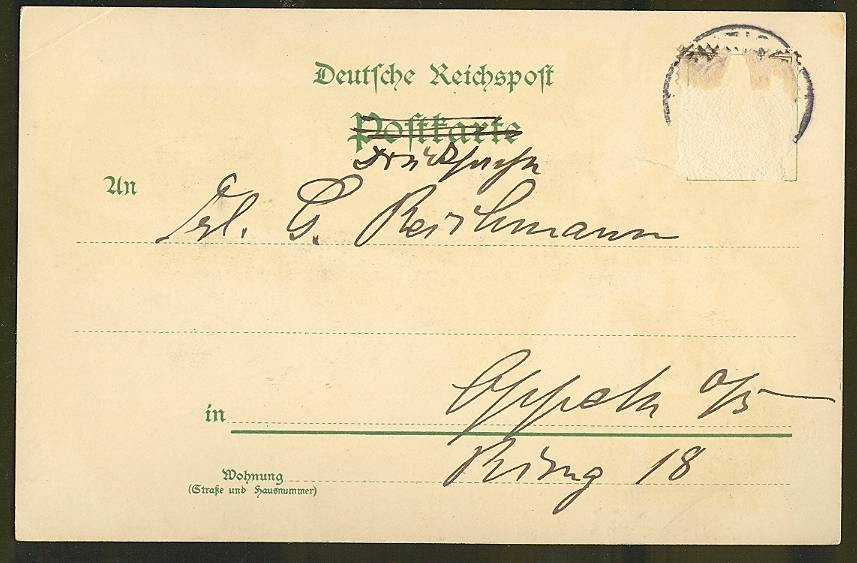 Deutsche Reichspost
Postkarte
Drucksache
An
Frl. G. Reichmann
in
Oppeln o/S
Ring 18
Wohnung
(Straße und Hausnummer)